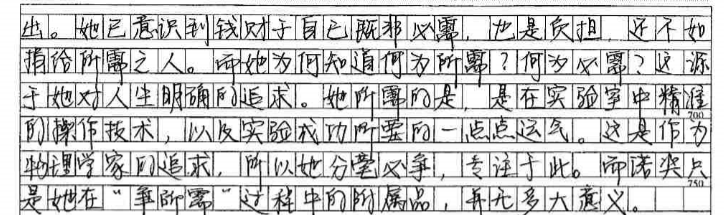 出。她已意识到钱财于自己既非必需，也是负担，还不如
捐给所需之人。而她为何知道何为所需？何为必需？这源
于她对人生明确的追求。她所需的是，是在实验室中精准
700
的操作技术，以及实验成功所需的一点点运气。这是作为
物理学家的追求，所以她分毫必争，专注于此。而诺奖只
750
是她在“争所需”过程中的附属品，并无多大意义。